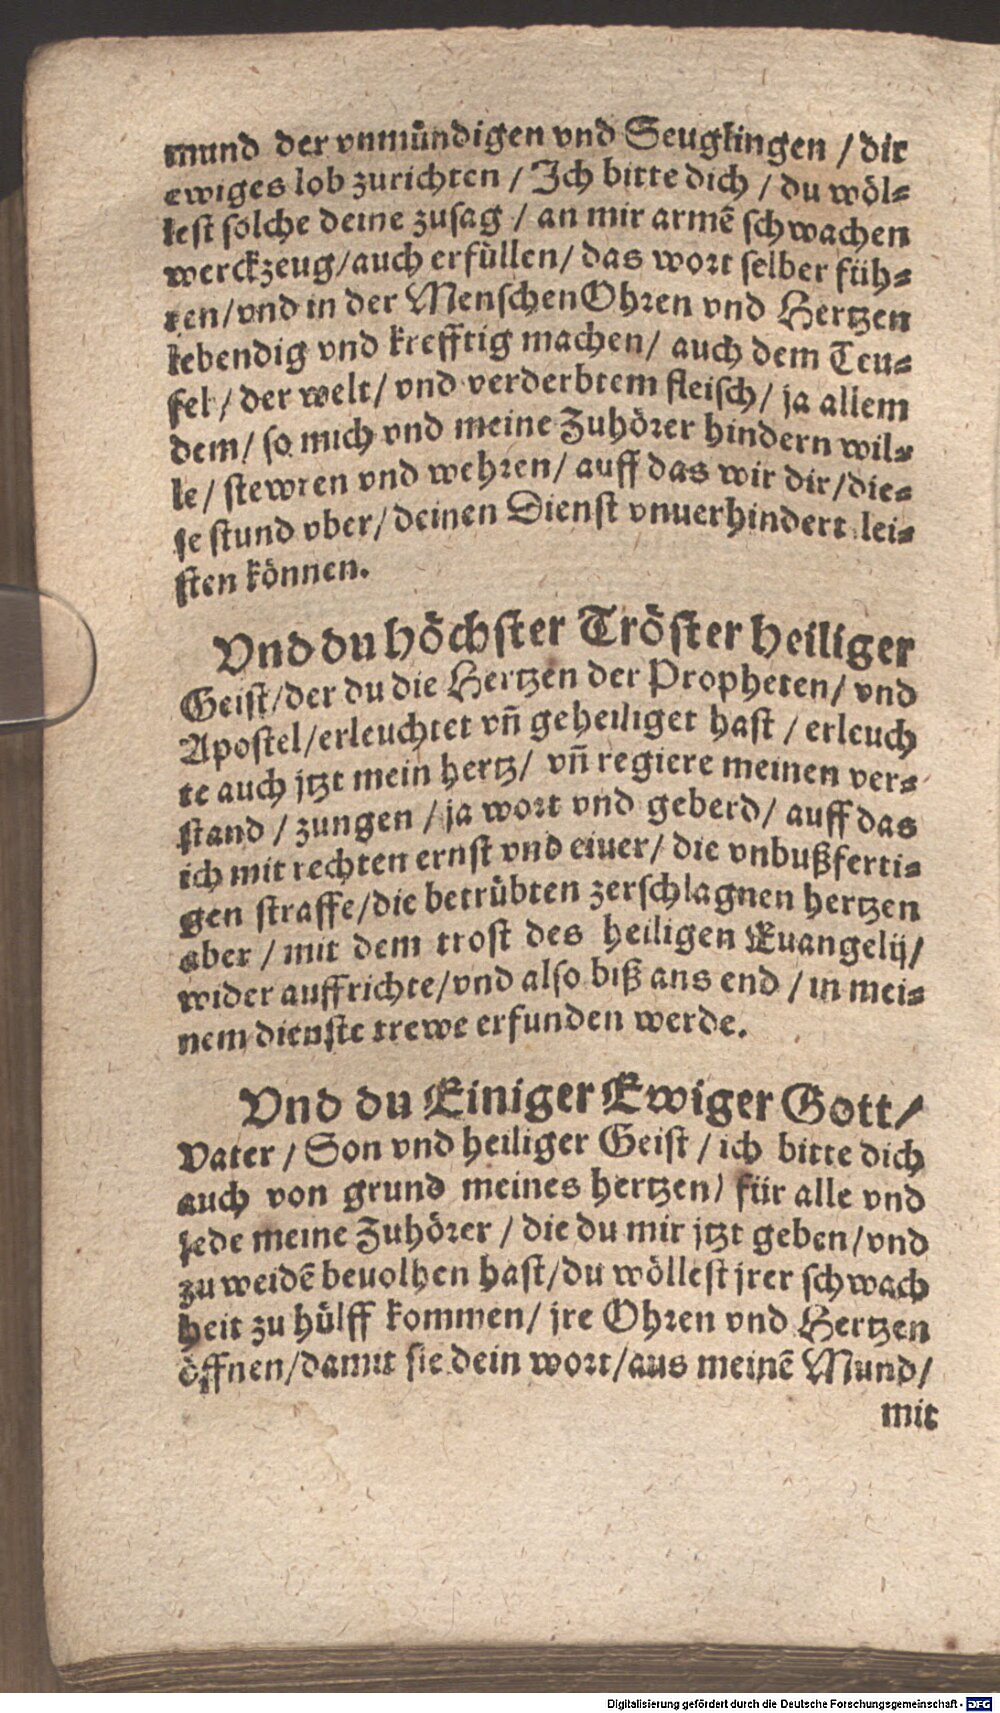 mund der vnmündigen vnd Seuglingen / dir
ewiges lob zurichten / Ich bitte dich / du wöl=
lest solche deine zusag / an mir armē schwachen
werckzeug/auch erfüllen/ das wort selber füh=
ren/vnd in der Menschen Ohren vnd Hertzen
lebendig vnd krefftig machen/ auch dem Teu=
fel/ der welt/ vnd verderbtem fleisch/ ja allem
dem/ so mich vnd meine Zuhörer hindern wil=
le/ stewren vnd wehren/ auff das wir dir/die=
se stund vber/deinen Dienst vnuerhindert lei=
sten können.
Vnd du höchster Tröster heiliger
Geist/der du die Hertzen der Propheten/ vnd
Apostel/erleuchtet vñ geheiliget hast / erleuch
te auch jtzt mein hertz/ vñ regiere meinen ver=
stand / zungen / ja wort vnd geberd/ auff das
ich mit rechten ernst vnd eiuer/ die vnbußferti=
gen straffe/die betrübten zerschlagnen hertzen
aber / mit dem trost des heiligen Euangelij/
wider auffrichte/vnd also biß ans end / in mei=
nem dienste trewe erfunden werde.
Vnd du Einiger Ewiger Gott/
Vater / Son vnd heiliger Geist / ich bitte dich
auch von grund meines hertzen/ für alle vnd
jede meine Zuhörer / die du mir jtzt geben/vnd
zu weidē beuolhen hast/du wöllest jrer schwach
heit zu hülff kommen/ jre Ohren vnd Hertzen
öffnen/damit sie dein wort/aus meinē Mund/
mit
Digitalisierung gefördert durch die Deutsche Forschungsgemeinschaft - DFG